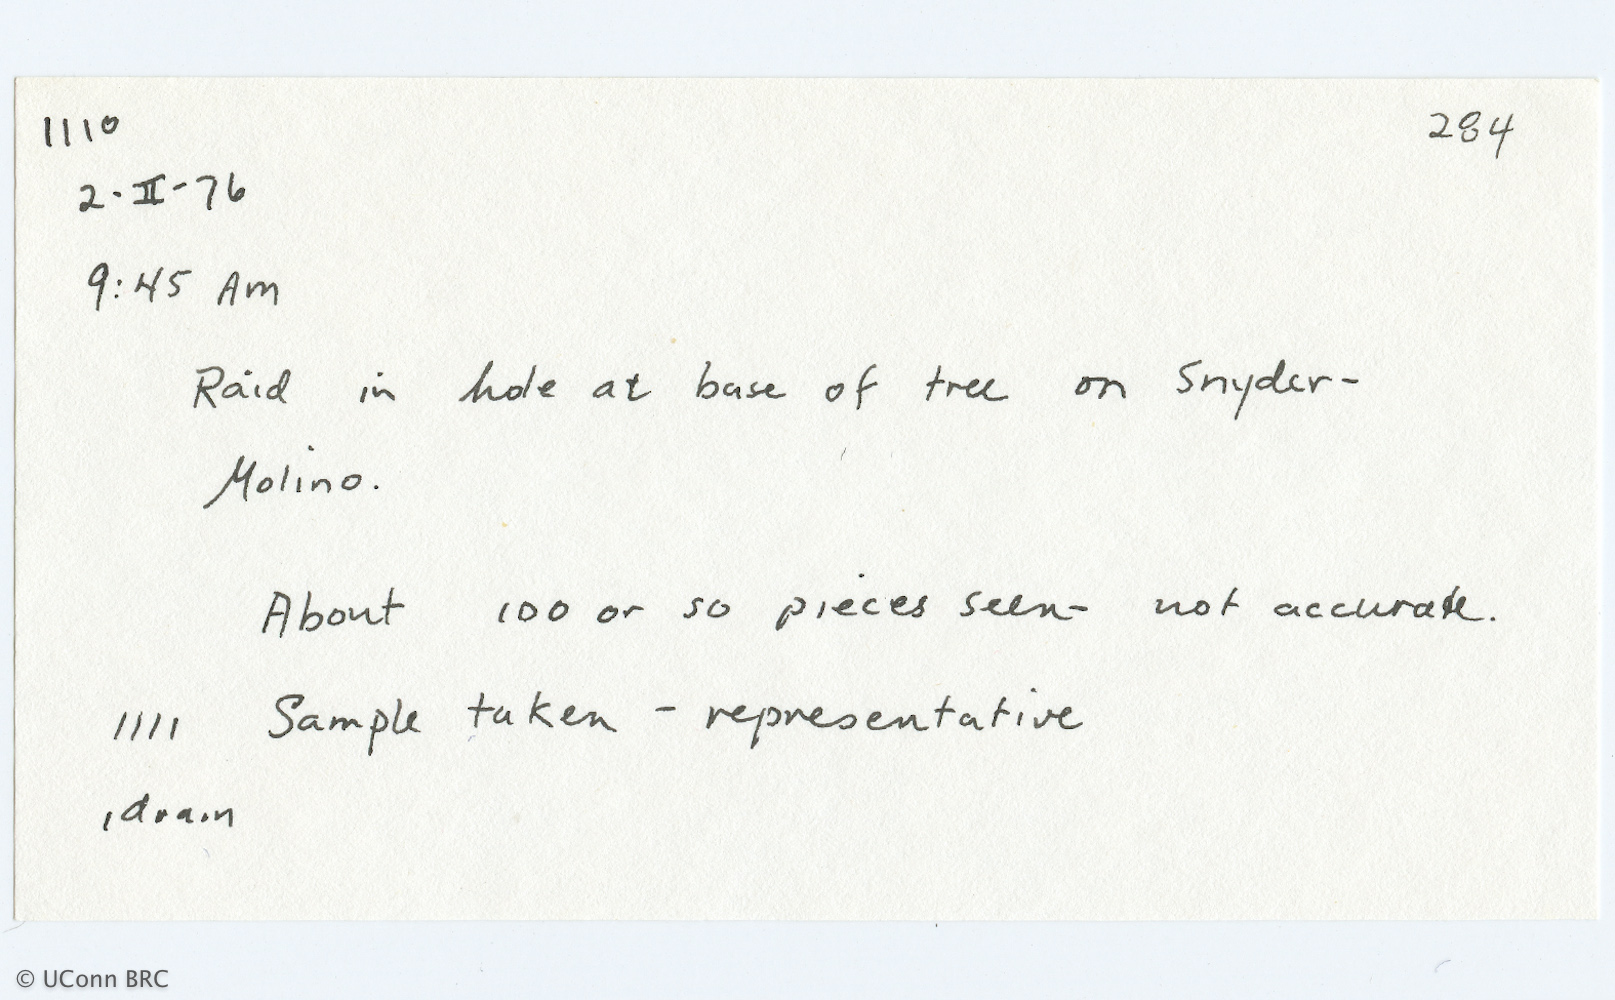 1110
284
2·II-76
9:45 Am
Raid in hole at base of tree on Snyder-
Molino.
About 100 or so pieces seen- not accurate.
1111 Sample taken - representative
1drain
© UConn BRC